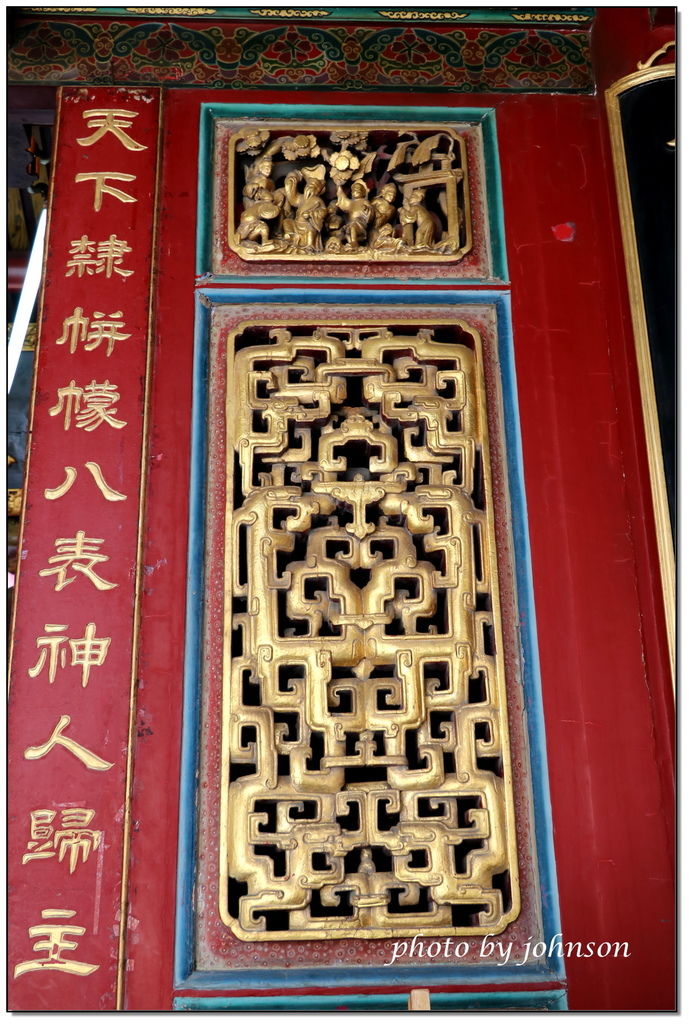 天下隸帡幪八表神人歸主
photo by johnson